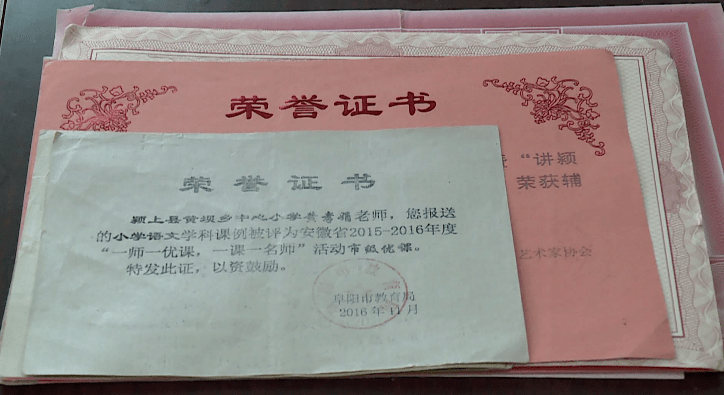 荣誉证书
“讲颍
荣获辅
艺术家协会
荣誉证书
颍上县黄坝乡中心小学黄秀福老师，您报送
的小学语文学科课例被评为安徽省2015-2016年度
“一师一优课，一课一名师”活动市级优课。
特发此证，以资鼓励。
阜阳市教育局
2016年11月